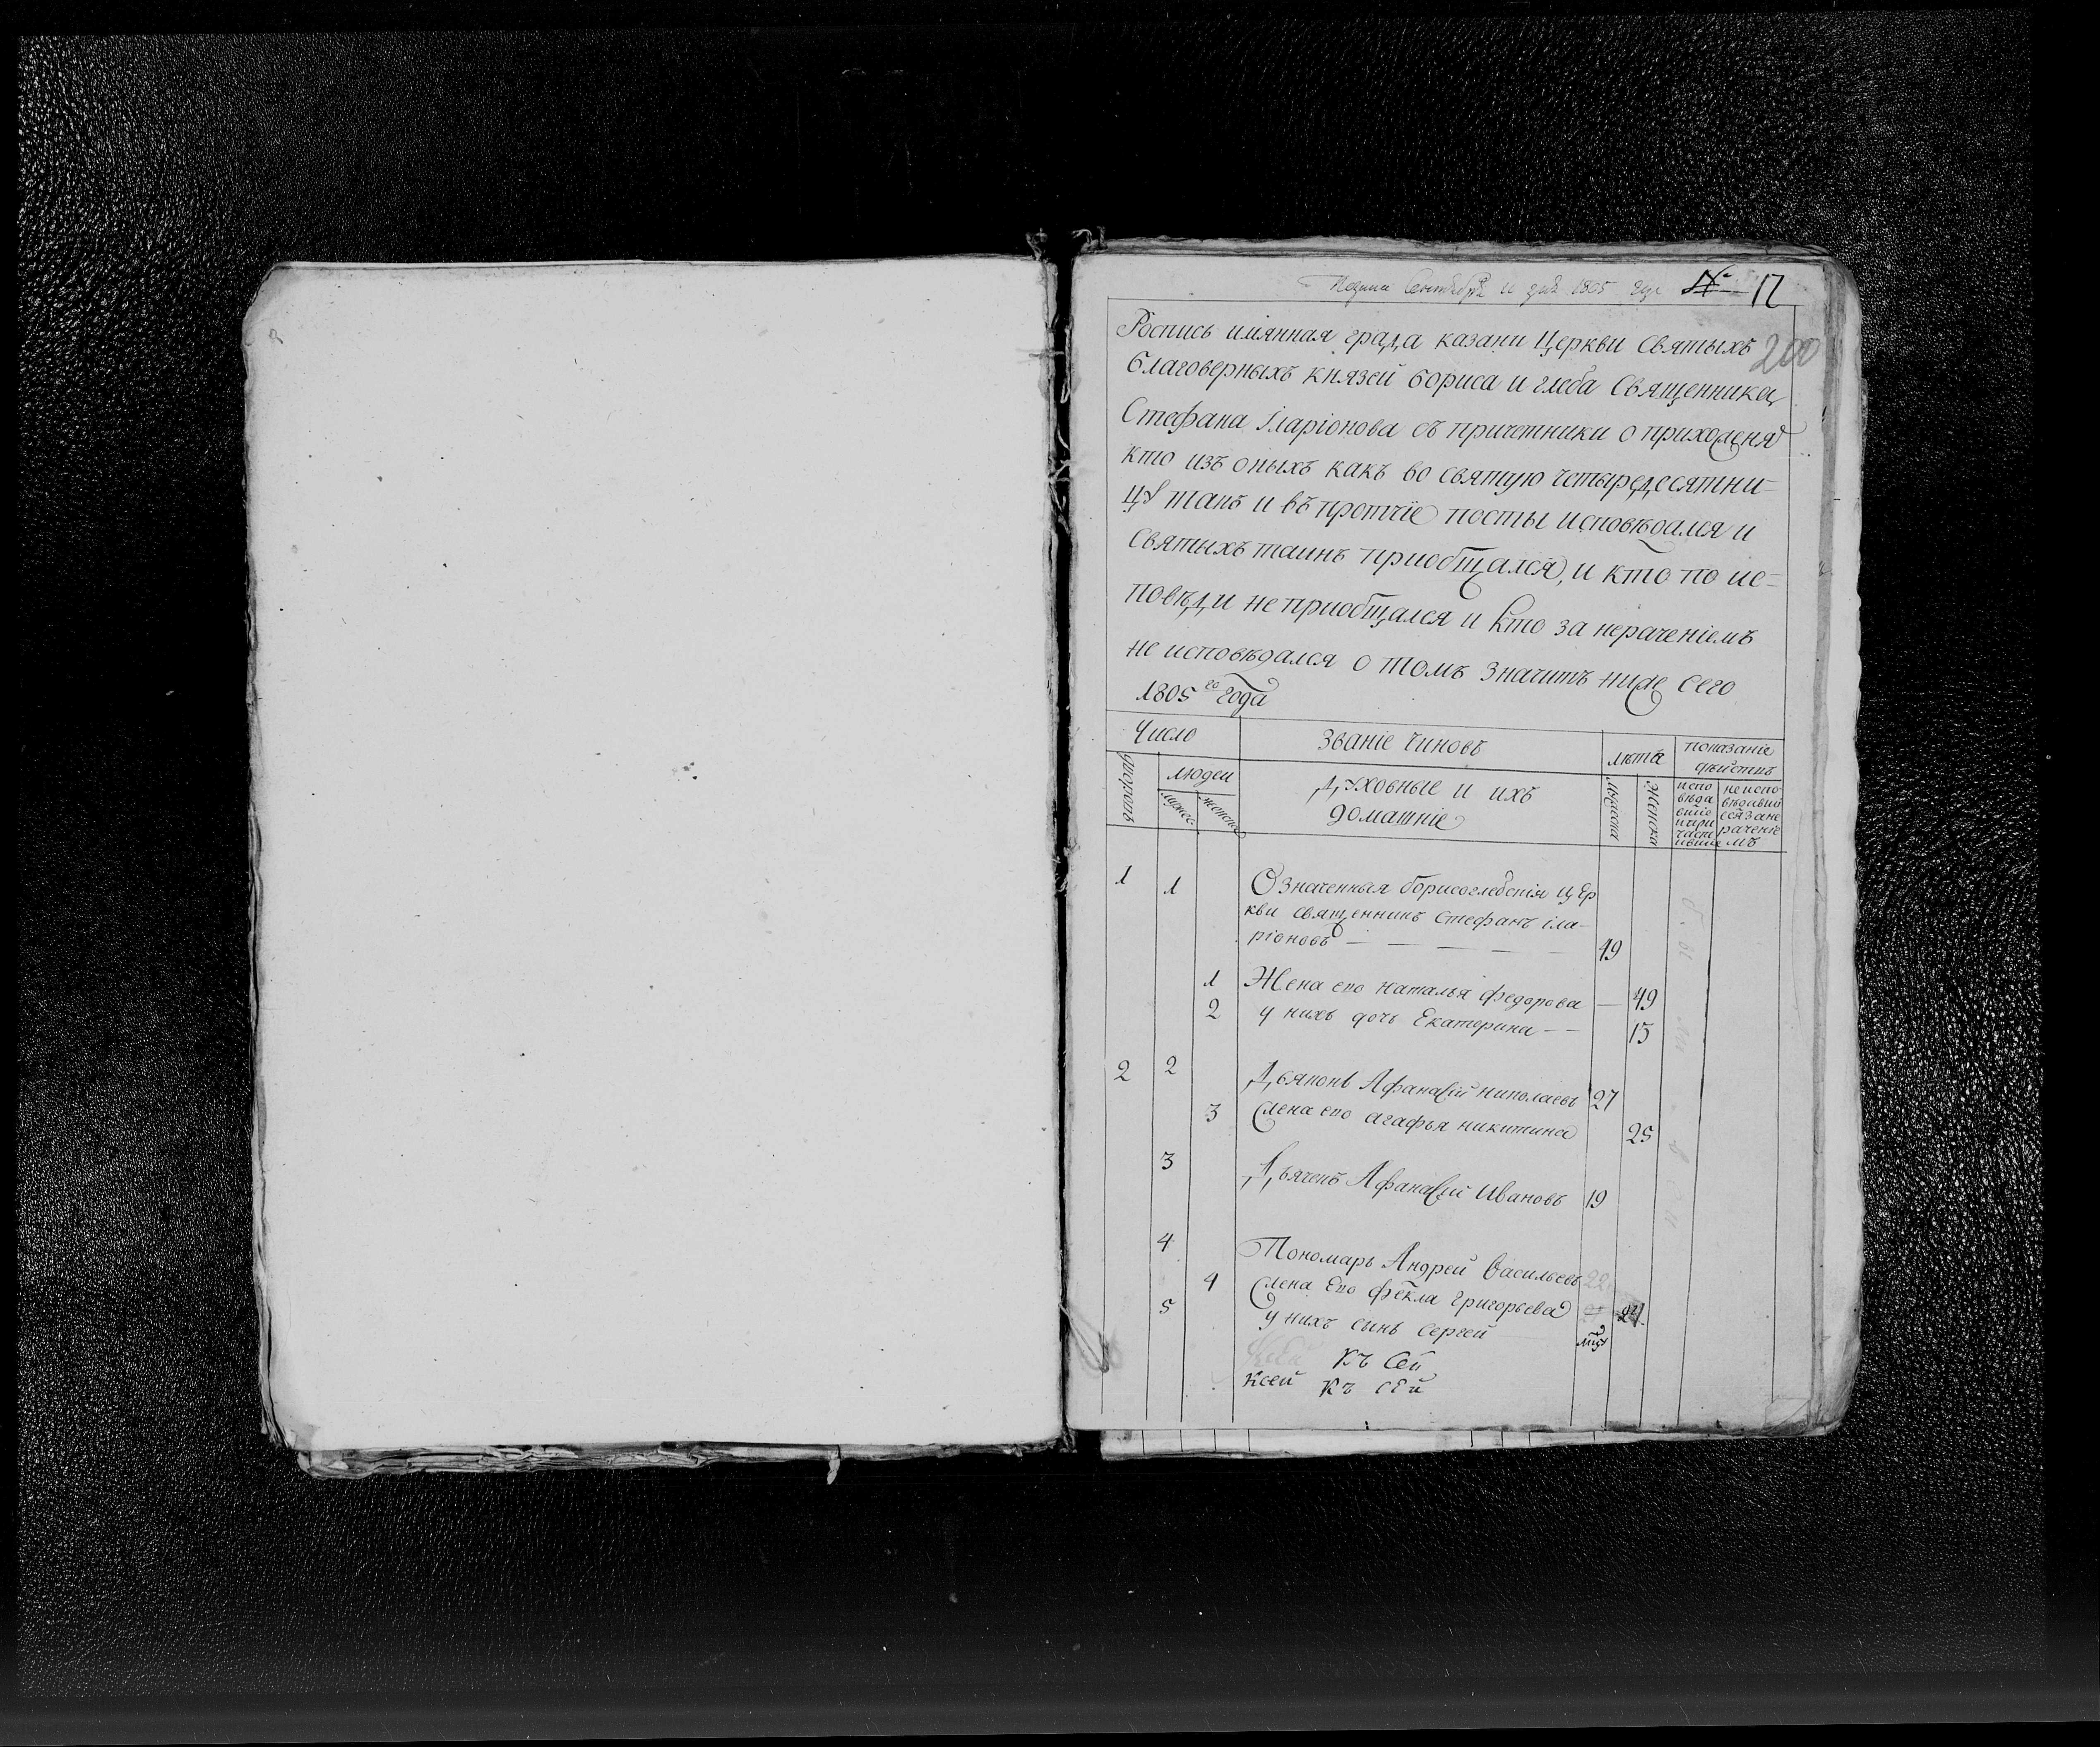 Подана Сентября 11 дня 1805 года № 12
200
Роспись имянная града казани Церкви Святыхъ
благоверныхъ князей бориса и глеба Священника
Стефана Iларiонова съ причетники о прихожаня
кто изъ оныхъ какъ во святую четыредесятни-
цу такъ и въ протчiе посты исповѣдался и
святыхъ таинъ приобщался, и кто по ис-
повѣди не приобщался и кто за нерачениемъ
не исповѣдался о томъ значитъ ниже сего
1805го года
Число Званiе чиновъ лѣта показанiе
дѣйствъ
дворовъ людей Духовные и ихъ
домашнiе
мужес. женска мужеска женска
испо
вѣда
вшiе
и при
части
вшие
не испо-
вѣдавши
еся за не
раченiе
мъ
1 1 Означенныя борисоглебскiя цер
кви священникъ Стефанъ iла-
рiоновъ — — — — 49
1 Жена его наталья федорова — 49
2 у нихъ дочь Екатерина — — 15
2 2 Дьяконъ Афанасiй николаевъ 27
3 жена его агафья никитина 25
3 Дьячекъ Афанасiй Ивановъ 19
4 Пономарь Андрей Васильевъ 22
4 жена Его фекла григорьева 21
5 у нихъ сынъ Сергей
Къ Сей
Ксей Къ СЕй